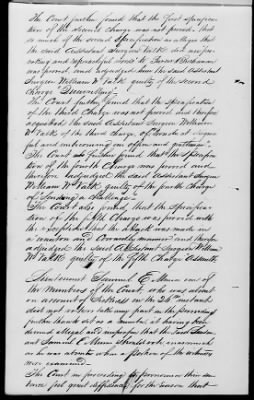 The Court further found that the first specifica-
tion of the second charge was not proved. That
so much of the second Specification as alleges that
the said Assistant Surgeon Valk did use pro-
voking and reproachful words to Purser Buchanan
was proved, and adjudged him the said Assistant
Surgeon William W Valk guilty of the second
Charge "Quarrelling".
The Court further found that the Specification
of the third Charge was not proved and therefore
acquitted the said Assistant Surgeon William
W Valk of the third charge, of conduct
and unbecoming an officer and gentleman".
The Court also further found that the Specifica-
tion of the fourth Charge was proved and
therefore adjudged the said Assistant Surgeon
William W Valk guilty of the fourth Charge
of "Sending a Challenge".
The Court also found, that the Specifica-
tion of the fifth Charge was proved with
the exception that the attack was made in
a and Cowardly manner and therefore
adjudged the said Assistant Surgeon William
W Valk guilty of the fifth Charge Assault.
Lieutenant Samuel E Munn one of
the members of the Court, who was absent
on account of Sickness on the 26th instant
did not take any part in the proceedings
further thanks as a member, it having been
deemed illegal and improper that the said Lieuten-
ant Samuel E Munn should vote, inasmuch
as he was absent when a portion of the witnesses
were examined.
The Court in proceeding to pronounce their sen-
tence feel great difficulty for the reason that